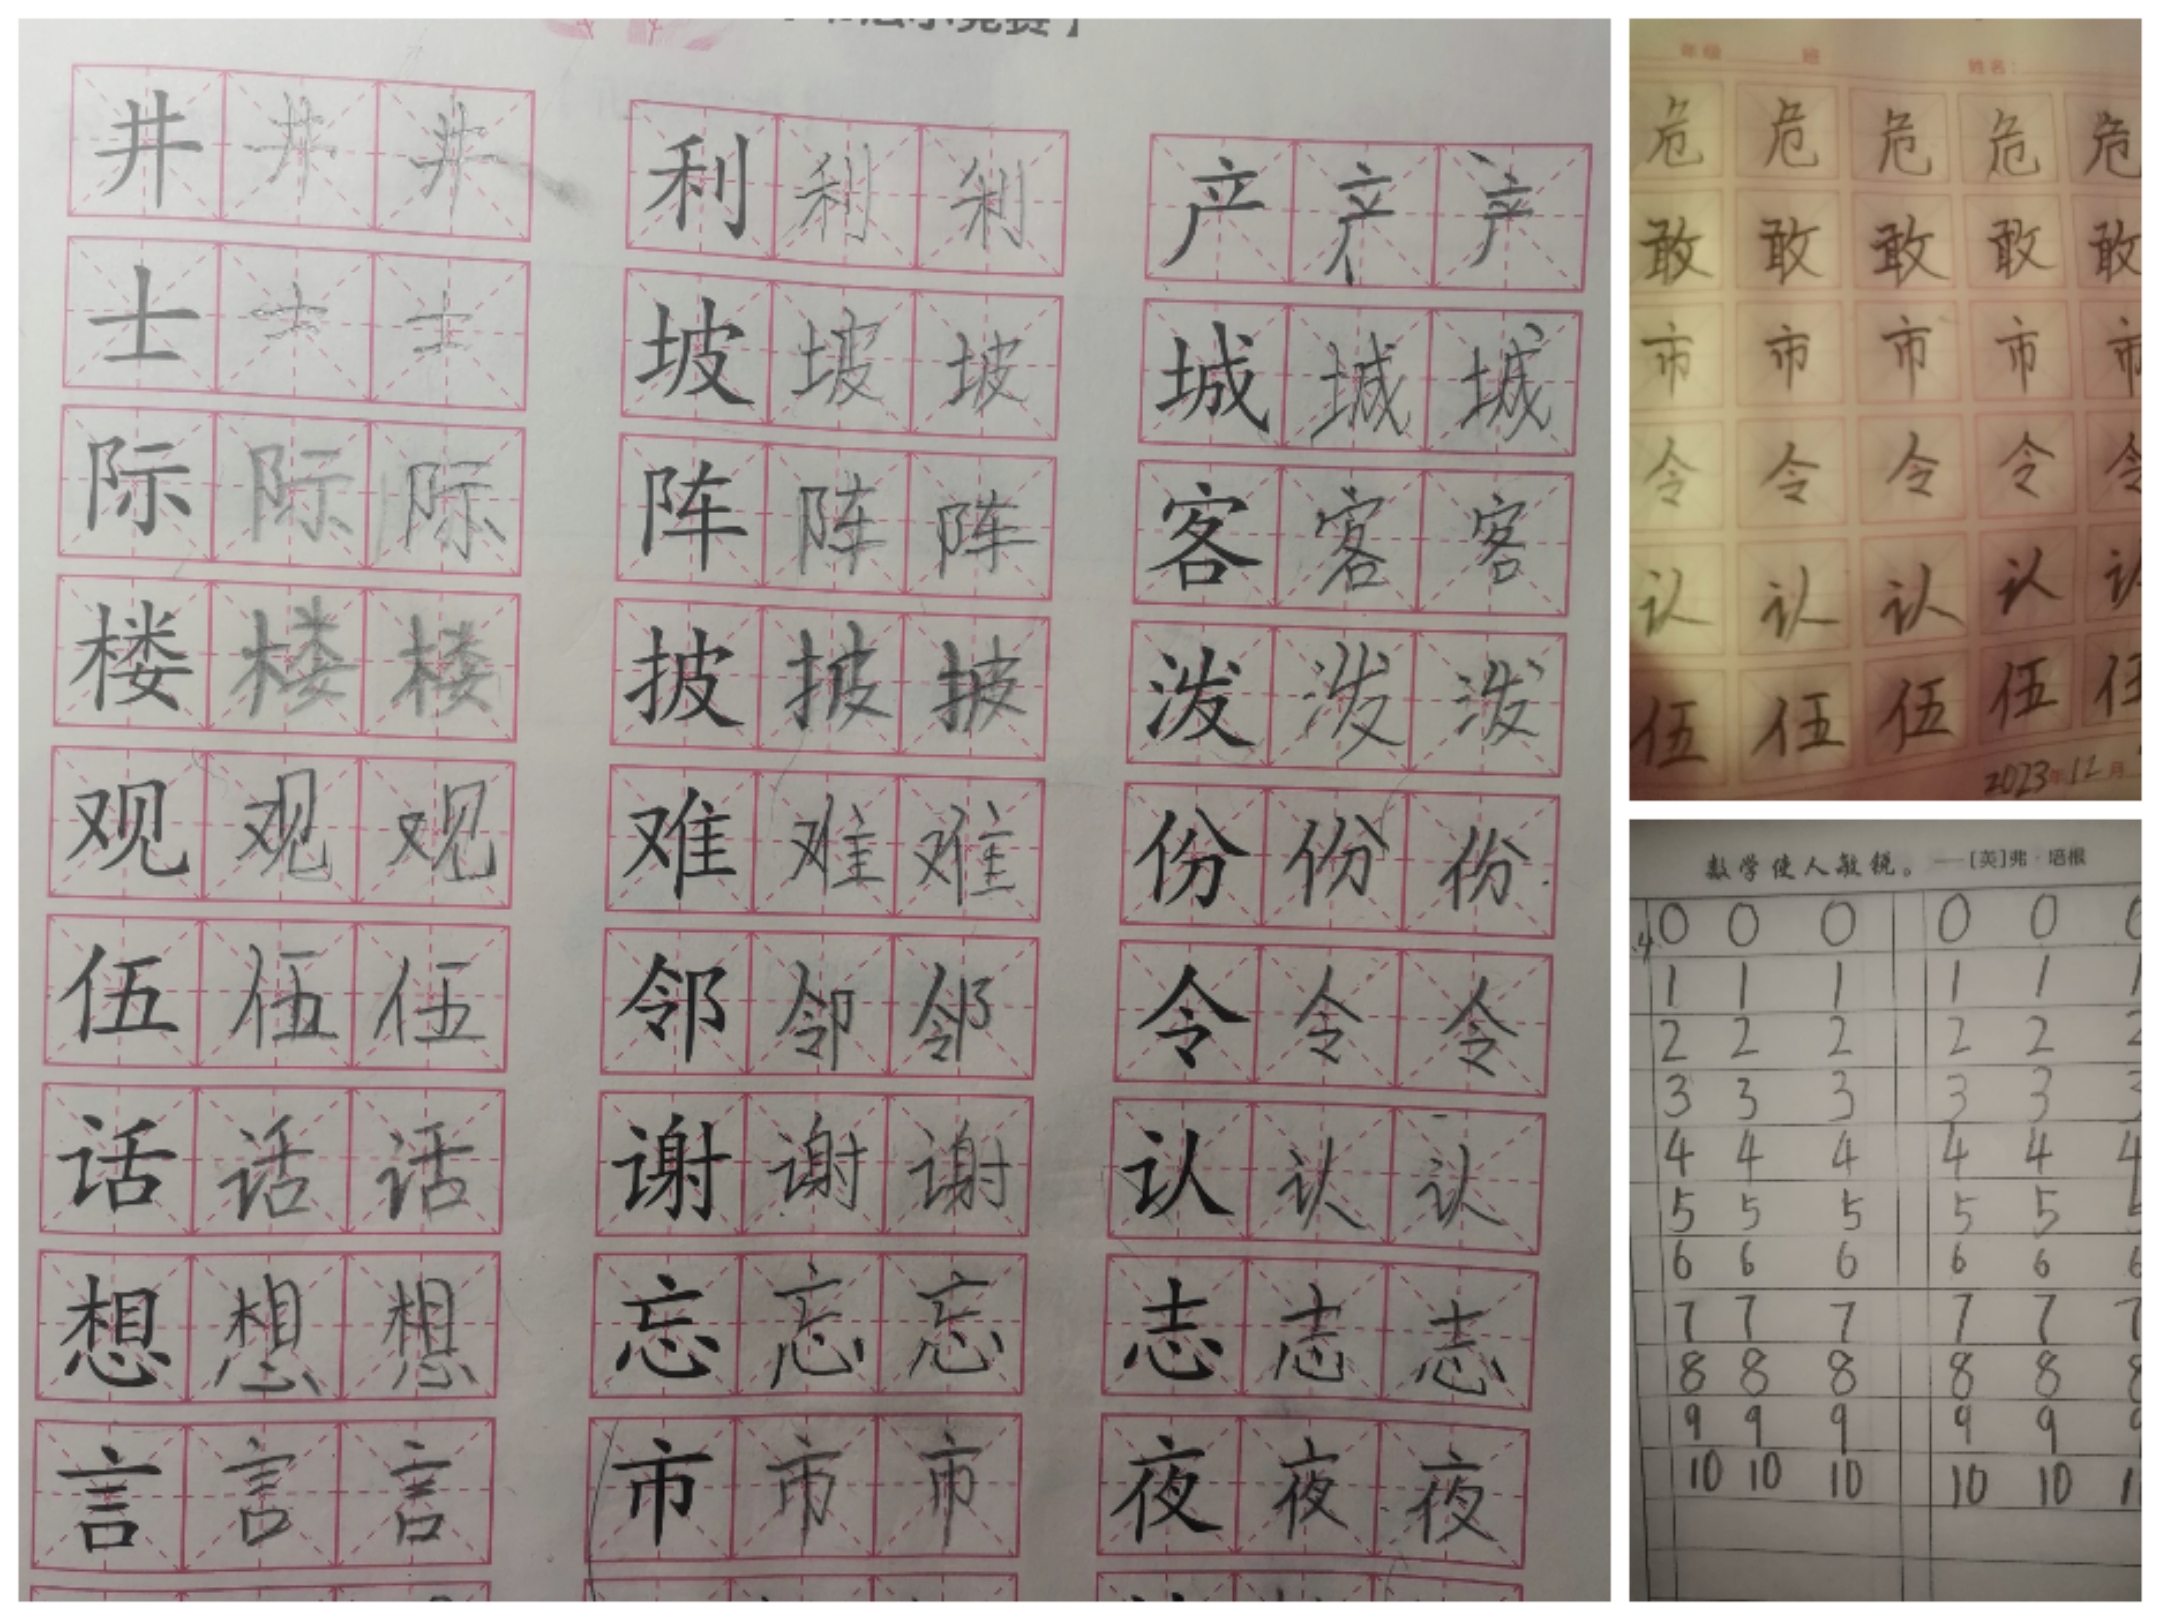 井 井 井 利 利 利 产 产 产
士 士 士 坡 坡 坡 城 城 城
际 际 际 阵 阵 阵 客 客 客
楼 楼 楼 披 披 披 泼 泼 泼
观 观 观 难 难 难 份 份 份
伍 伍 伍 邻 邻 邻 令 令 令
话 话 话 谢 谢 谢 认 认 认
想 想 想 忘 忘 忘 志 志 志
言 言 言 市 市 市 夜 夜 夜
年级 班 姓名:
危 危 危 危 危
敢 敢 敢 敢 敢
市 市 市 市 市
令 令 令 令 令
认 认 认 认 认
伍 伍 伍 伍 伍
2023年12月
数学使人敏锐。——[英]弗·培根
0 0 0 0 0 0
1 1 1 1 1 1
2 2 2 2 2 2
3 3 3 3 3 3
4 4 4 4 4 4
5 5 5 5 5 5
6 6 6 6 6 6
7 7 7 7 7 7
8 8 8 8 8 8
9 9 9 9 9 9
10 10 10 10 10